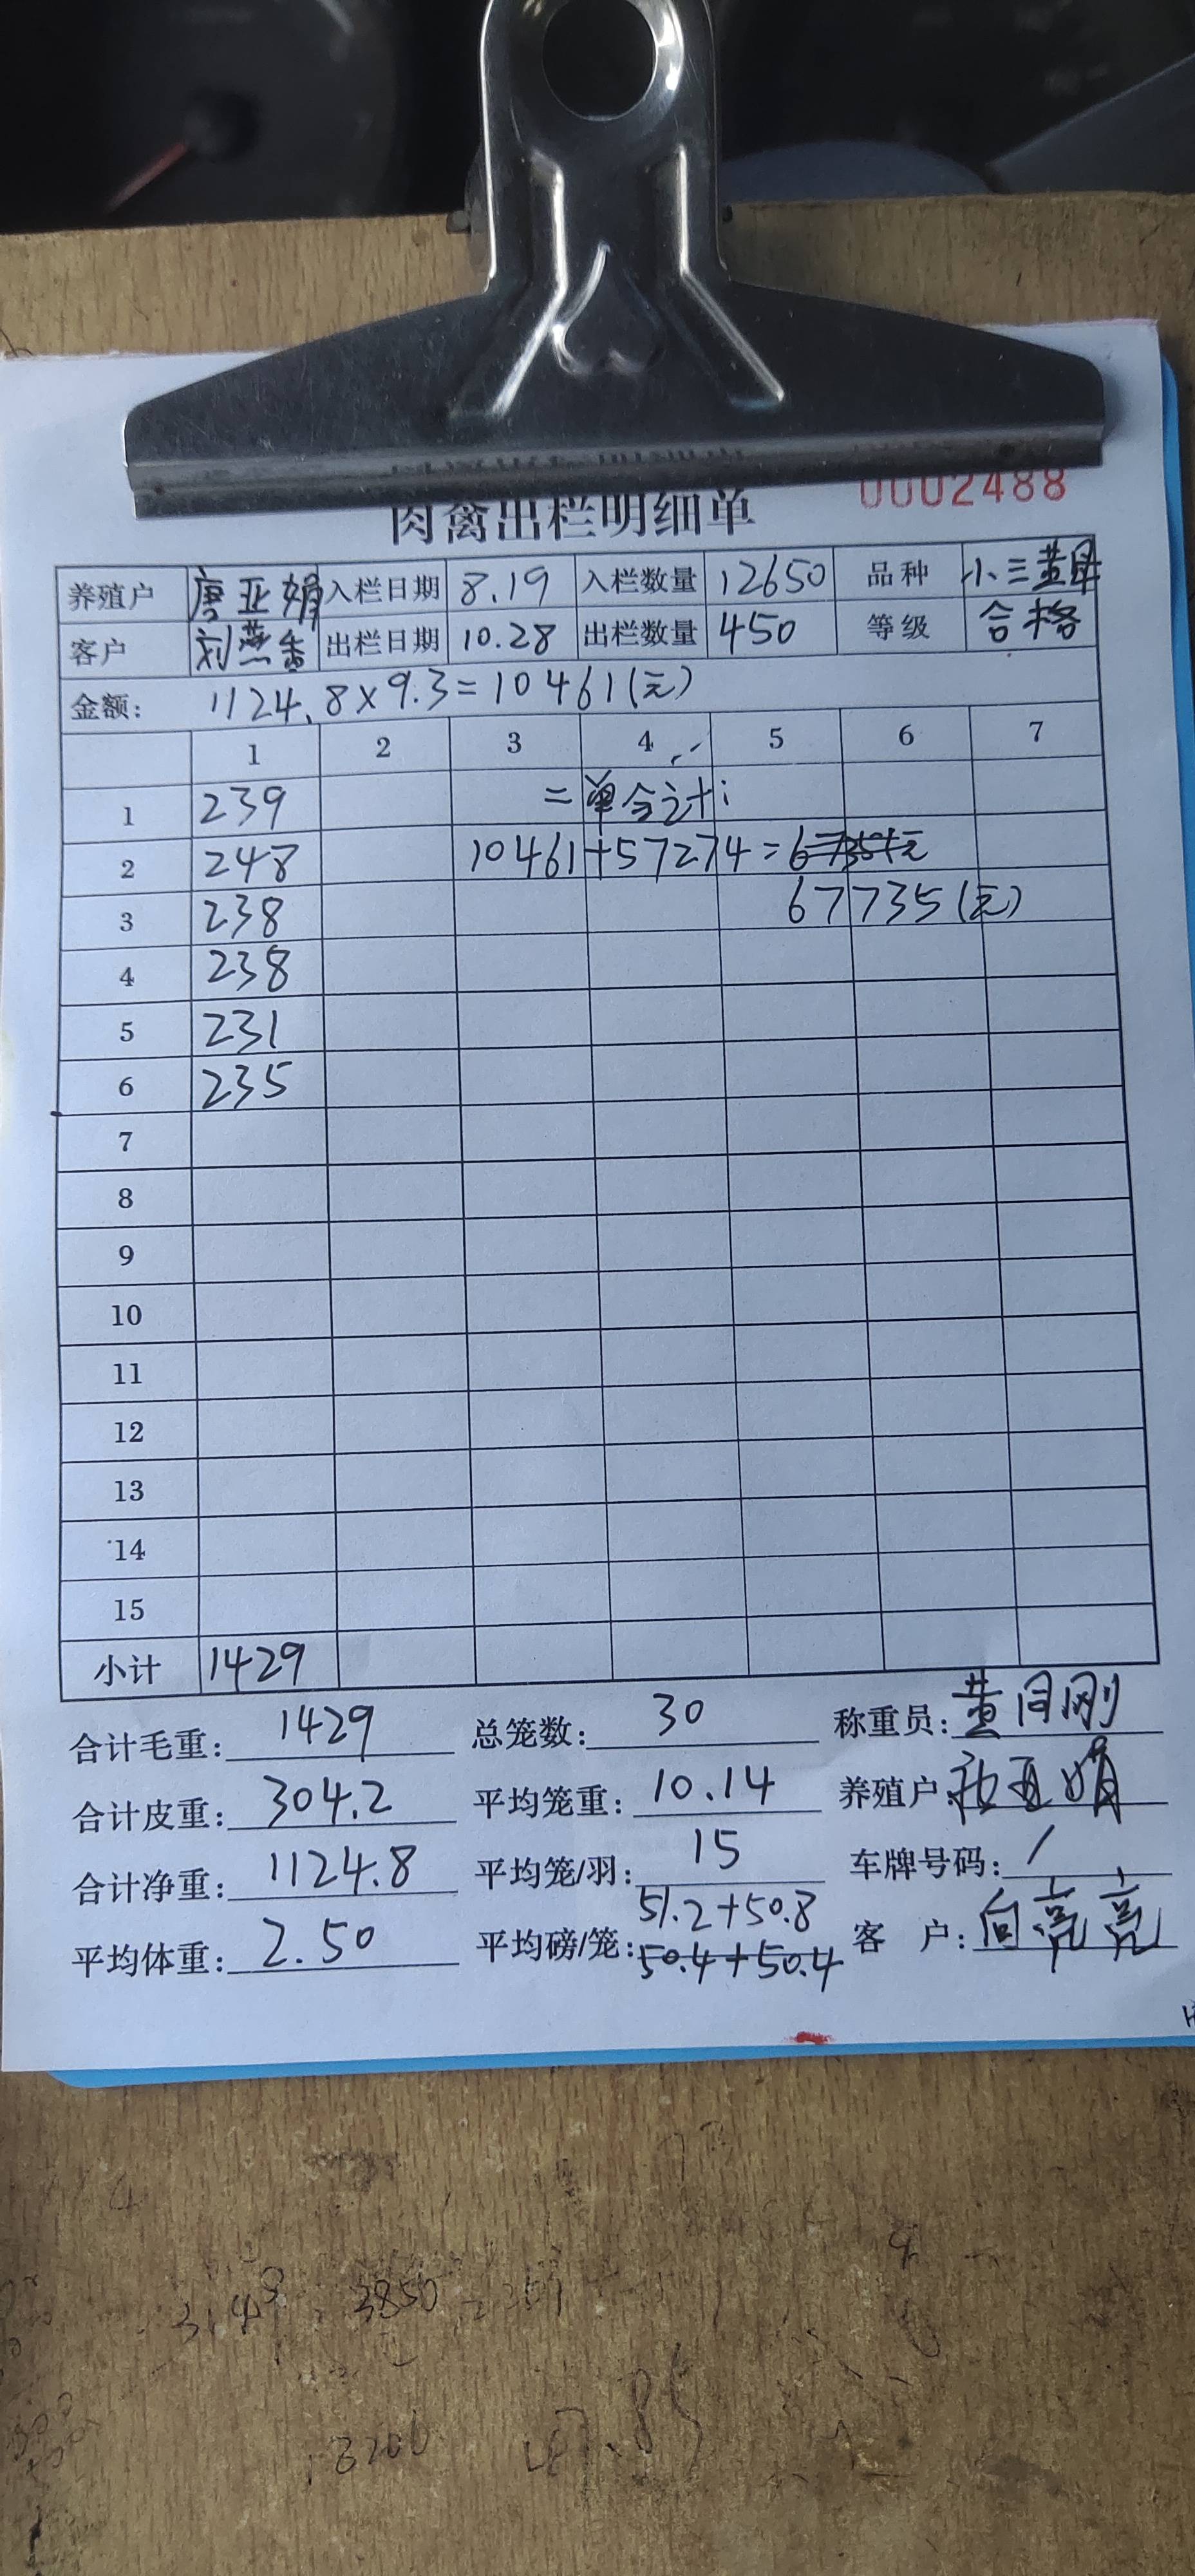 肉禽出栏明细单 0002488
养殖户 唐亚娟 入栏日期 8.19 入栏数量 12650 品种 小三黄母
客户 刘燕香 出栏日期 10.28 出栏数量 450 等级 合格
金额: 1124.8×9.3=10461(元)
1 2 3 4 5 6 7
1 239 二单合计:
2 248 10461+57274=67735元
3 238 67735(元)
4 238
5 231
6 235
7
8
9
10
11
12
13
14
15
小计 1429
合计毛重: 1429 总笼数: 30 称重员: 黄月刚
合计皮重: 304.2 平均笼重: 10.14 养殖户: 亚娟
合计净重: 1124.8 平均笼/羽: 15 车牌号码: /
51.2+50.8
平均体重: 2.50 平均磅/笼: 50.4+50.4 客户: 向亮亮
3200